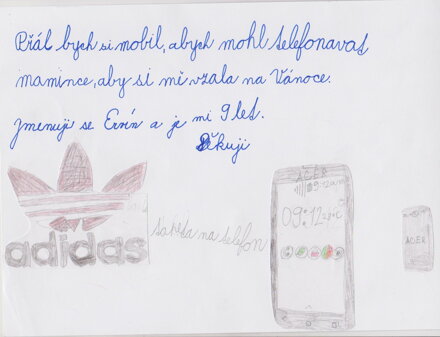 Přál bych si mobil, abych mohl telefonovat
mamince, aby si mě vzala na Vánoce.
Jmenuji se Ervín a je mi 9 let.
Děkuji
adidas
na telefon
ACER
9:12am
09:12
ACER